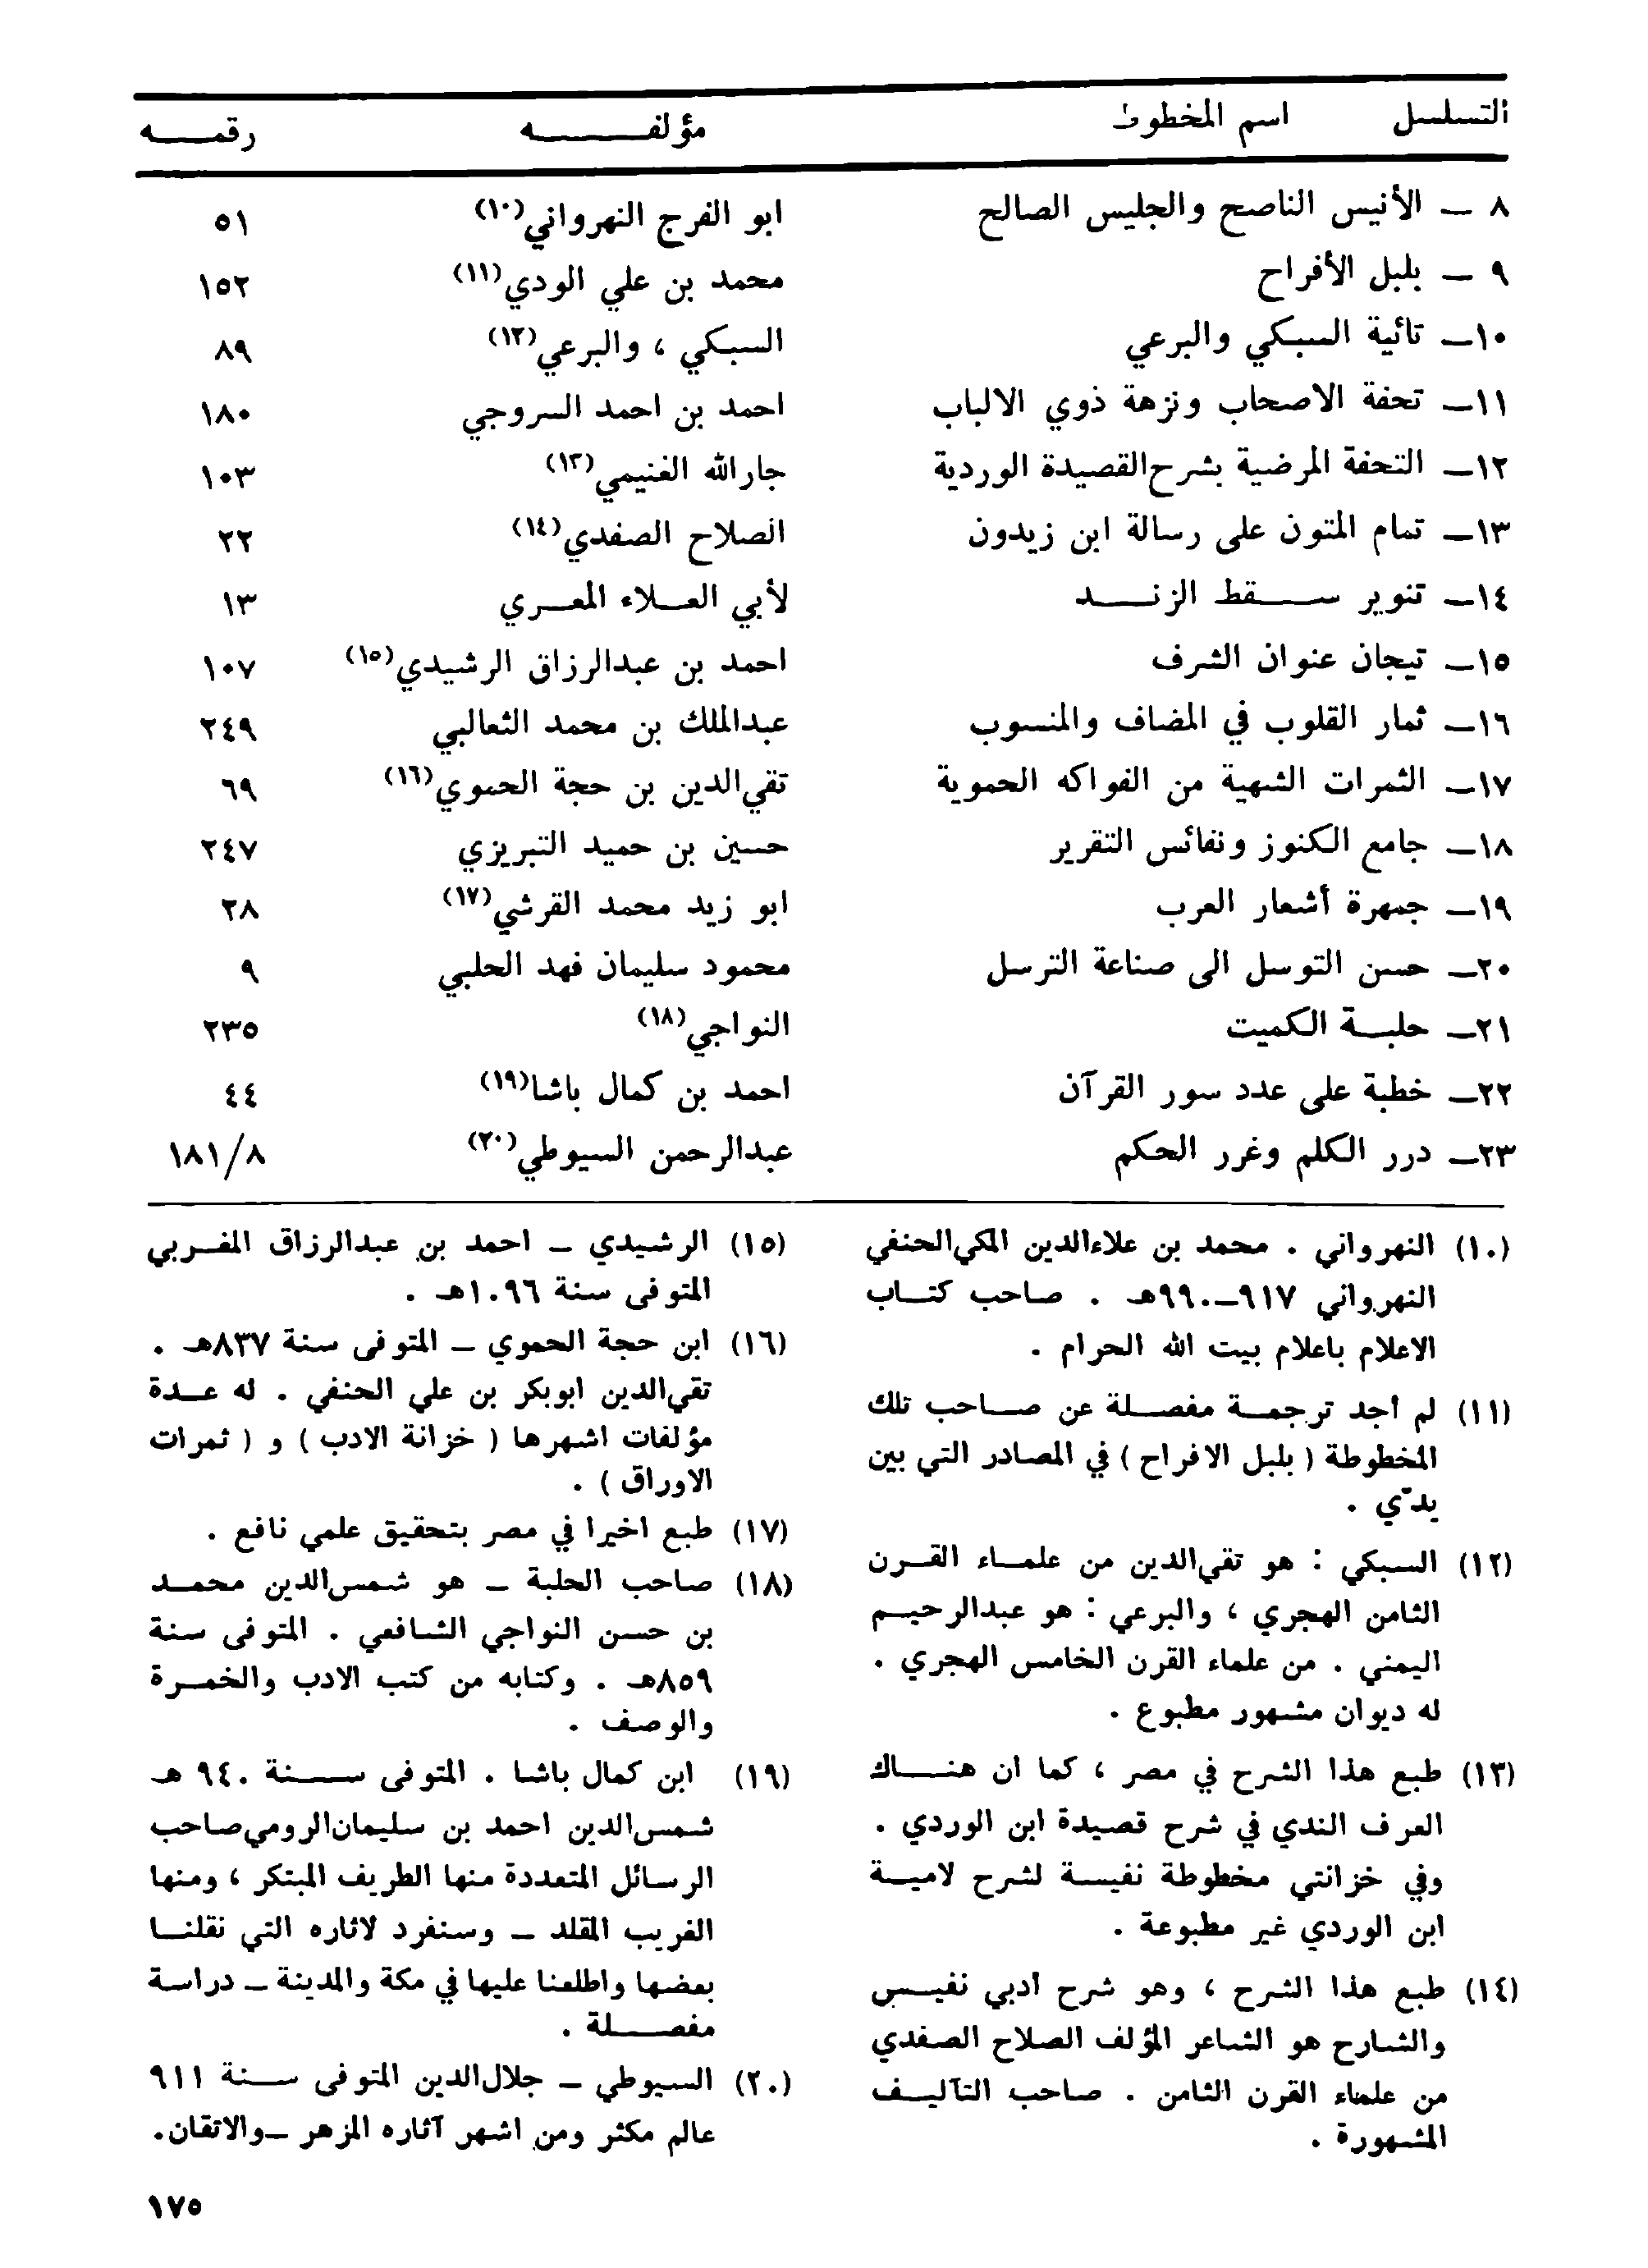 التسلسل اسم المخطوط مؤلفـــــه رقمـــه
٨ – الأنيس الناصح والجليس الصالح ابو الفرج النهرواني(١٠) ٥١
٩ – بلبل الأفراح محمد بن علي الودي(١١) ١٥٢
١٠– تائية السبكي والبرعي السبكي ، والبرعي(١٢) ٨٩
١١– تحفة الاصحاب ونزهة ذوي الالباب احمد بن احمد السروجي ١٨٠
١٢– التحفة المرضية بشرح القصيدة الوردية جارالله الغنيمي(١٣) ١٠٣
١٣– تمام المتون على رسالة ابن زيدون الصلاح الصفدي(١٤) ٢٢
١٤– تنوير ســـقط الزنـــد لأبي العـلاء المعـري ١٣
١٥– تيجان عنوان الشرف احمد بن عبدالرزاق الرشيدي(١٥) ١٠٧
١٦– ثمار القلوب في المضاف والمنسوب عبدالملك بن محمد الثعالبي ٢٤٩
١٧– الثمرات الشهية من الفواكه الحموية تقي‌الدين بن حجة الحموي(١٦) ٦٩
١٨– جامع الكنوز ونفائس التقرير حسين بن حميد التبريزي ٢٤٧
١٩– جمهرة أشعار العرب ابو زيد محمد القرشي(١٧) ٢٨
٢٠– حسن التوسل الى صناعة الترسل محمود سليمان فهد الحلبي ٩
٢١– حلبــة الكميت النواجي(١٨) ٢٣٥
٢٢– خطبة على عدد سور القرآن احمد بن كمال باشا(١٩) ٤٤
٢٣– درر الكلم وغرر الحكم عبدالرحمن السيوطي(٢٠) ١٨١/٨
(١٠) النهرواني . محمد بن علاءالدين المكي‌الحنفي
النهرواني ٩١٧–٩٩٠هـ . صاحب كتــاب
الاعلام باعلام بيت الله الحرام .
(١١) لم اجد ترجمــة مفصــلة عن صــاحب تلك
المخطوطة ( بلبل الافراح ) في المصادر التي بين
يديّ .
(١٢) السبكي : هو تقي‌الدين من علمــاء القــرن
الثامن الهجري ، والبرعي : هو عبدالرحيــم
اليمني . من علماء القرن الخامس الهجري .
له ديوان مشهور مطبوع .
(١٣) طبع هذا الشرح في مصر ، كما ان هنــاك
العرف الندي في شرح قصيدة ابن الوردي .
وفي خزانتي مخطوطة نفيسة لشرح لاميــة
ابن الوردي غير مطبوعة .
(١٤) طبع هذا الشرح ، وهو شرح أدبي نفيــس
والشارح هو الشاعر المؤلف الصلاح الصفدي
من علماء القرن الثامن . صاحب التآليــف
المشهورة .
(١٥) الرشيدي – احمد بن عبدالرزاق المغــربي
المتوفى سنة ١٠٩٦هـ .
(١٦) ابن حجة الحموي – المتوفى سنة ٨٣٧هـ .
تقي‌الدين ابوبكر بن علي الحنفي . له عــدة
مؤلفات اشهرها ( خزانة الادب ) و ( ثمرات
الاوراق ) .
(١٧) طبع اخيرا في مصر بتحقيق علمي نافع .
(١٨) صاحب الحلبة – هو شمس‌الدين محمــد
بن حسن النواجي الشافعي . المتوفى سنة
٨٥٩هـ . وكتابه من كتب الادب والخمــرة
والوصف .
(١٩) ابن كمال باشا . المتوفى ســـنة ٩٤٠ هـ
شمس‌الدين احمد بن سليمان‌الرومي‌صاحب
الرسائل المتعددة منها الطريف المبتكر ، ومنها
الغريب المقلد – وسنفرد لاثاره التي نقلنــا
بعضها واطلعنا عليها في مكة والمدينة – دراسة
مفصـــلة .
(٢٠) السيوطي – جلال‌الدين المتوفى ســنة ٩١١
عالم مكثر ومن اشهر آثاره المزهر –والاتقان.
١٧٥